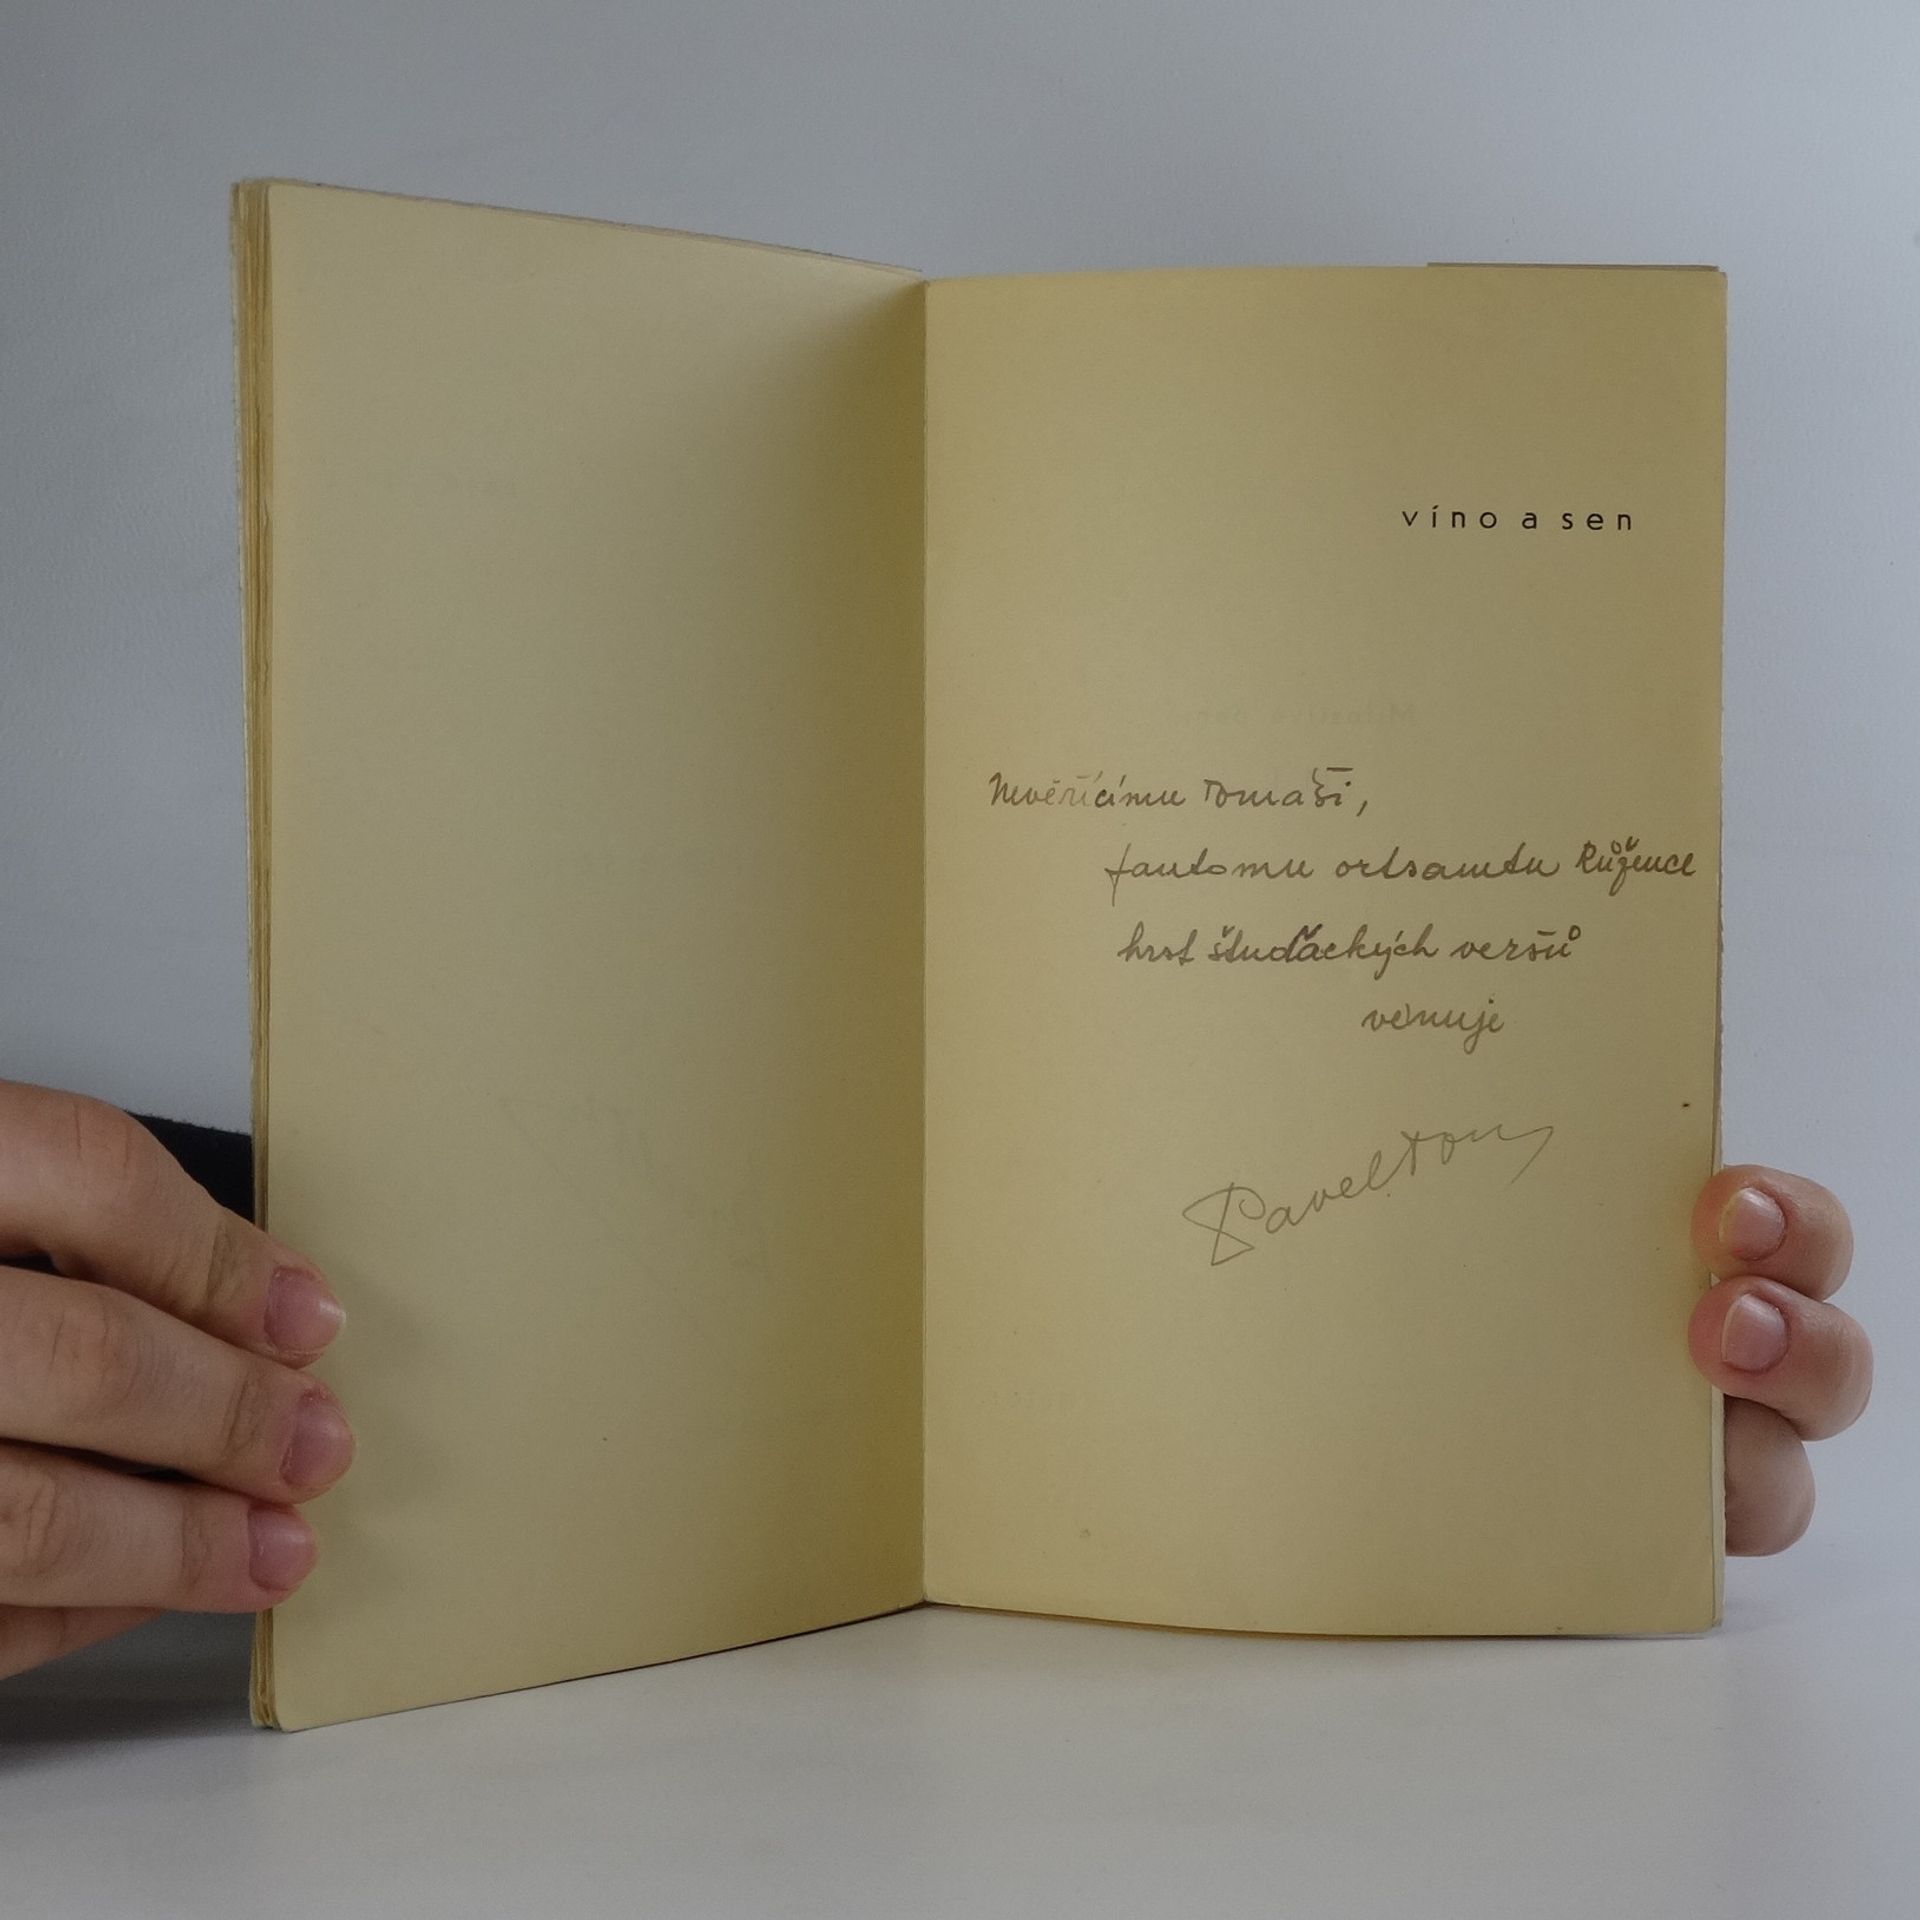 víno a sen
Nevěřícímu Tomáši,
fantomu ortsamtu Růžence
hrst študáckých veršů
věnuje
Pavel Tom